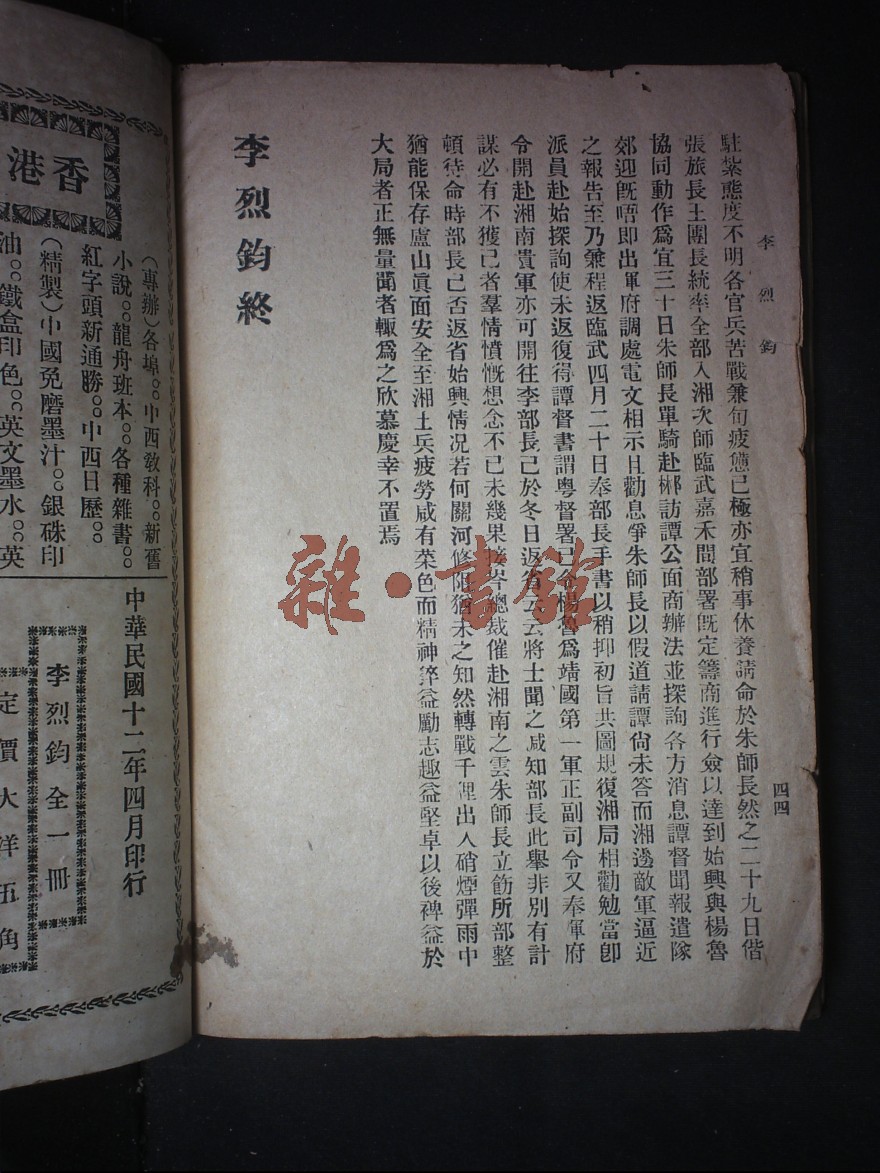 李烈鈞
四四
駐紮態度不明各官兵苦戰兼旬疲憊已極亦宜稍事休養請命於朱師長然之二十九日偕
張旅長王團長統率全部入湘次師臨武嘉禾間部署旣定籌商進行僉以達到始興與楊魯
協同動作爲宜三十日朱師長單騎赴郴訪譚公面商辦法並探詢各方消息譚督聞報遣隊
郊迎旣唔即出軍府調處電文相示且勸息爭朱師長以假道請譚尙未答而湘邊敵軍逼近
之報告至乃兼程返臨武四月二十日奉部長手書以稍抑初旨共圖規復湘局相勸勉當卽
派員赴始探詢使未返復得譚督書謂粵督署已令楊魯爲靖國第一軍正副司令又奉軍府
令開赴湘南貴軍亦可開往李部長已於冬日返省云云將士聞之咸知部長此舉非別有計
謀必有不獲已者羣情憤慨想念不已未幾果接岑總裁催赴湘南之電朱師長立飭所部整
頓待命時部長已否返省始興情况若何關河修阻猶未之知然轉戰千里出入硝煙彈雨中
猶能保存盧山眞面安全至湘士兵疲勞咸有菜色而精神錊益勵志趣益堅卓以後裨益於
大局者正無量聞者輒爲之欣慕慶幸不置焉
李烈鈞終
雜·書館
香港
(專辦)各埠○○中西敎科○○新舊
小說○○龍舟班本○○各種雜書○○
紅字頭新通勝○○中西日歷○○
(精製)中國免磨墨汁○○銀硃印
油○○鐵盒印色○○英文墨水○○英
中華民國十二年四月印行
李烈鈞全一冊
定價大洋伍角